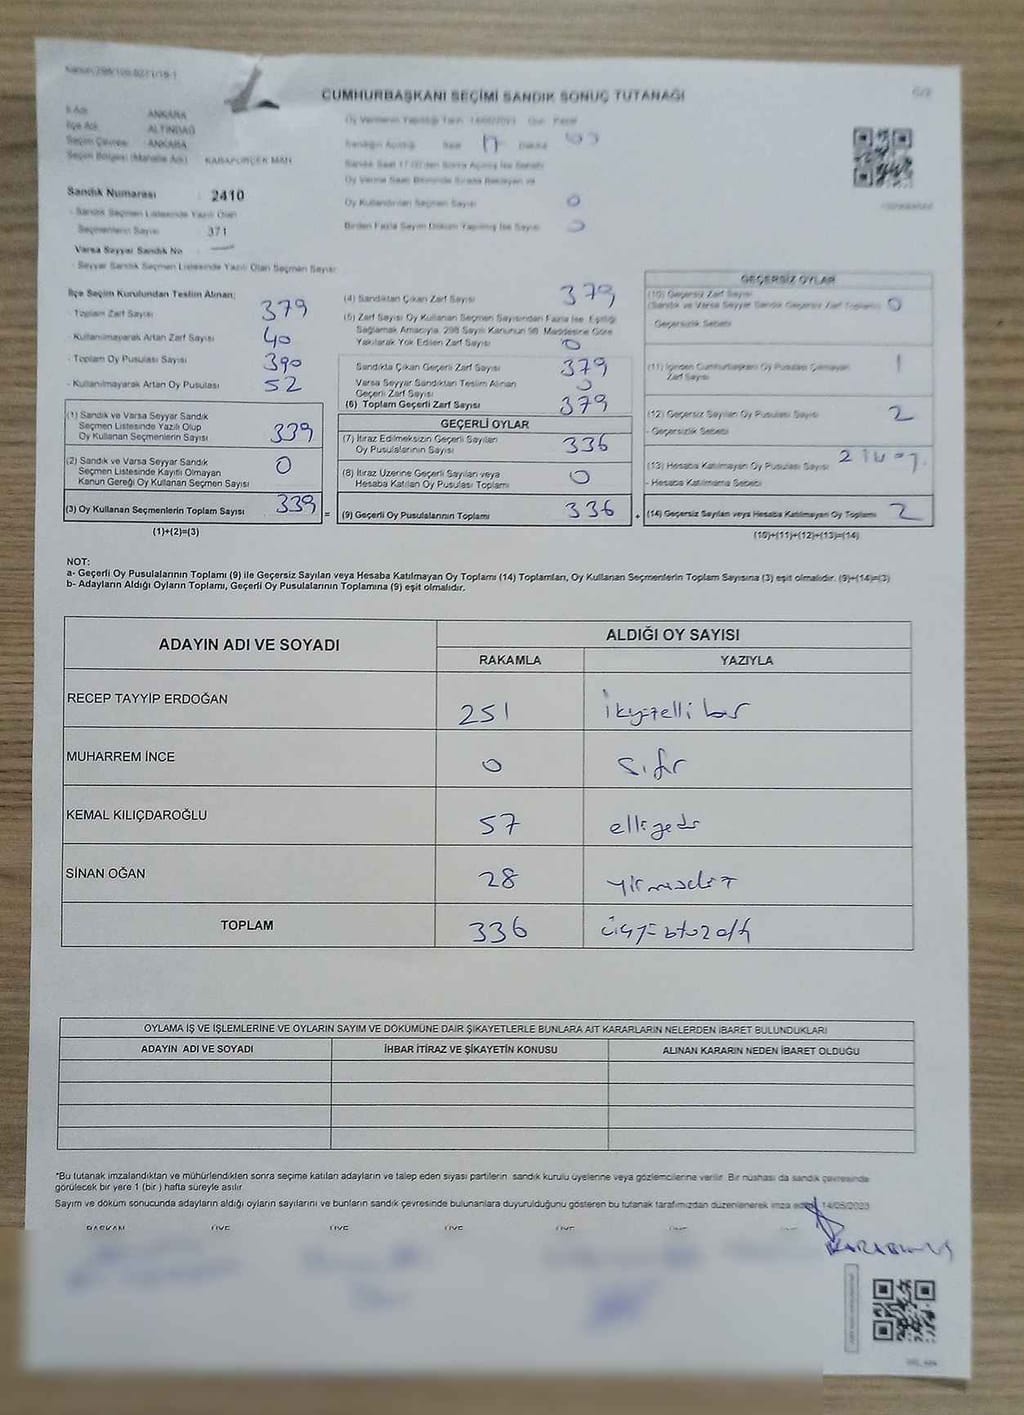 CUMHURBAŞKANI SEÇİMİ SANDIK SONUÇ TUTANAĞI
İl Adı ANKARA
İlçe Adı ALTINDAĞ
Seçim Çevresi ANKARA
Seçim Bölgesi (Mahalle Adı) KARAPÜRÇEK MAH.
Oy Vermenin Yapıldığı Tarih 14/05/2023 Gün Pazar
Sandığın Açıldığı Saat 17 Dakika
Sandık Numarası 2410
- Sandık Seçmen Listesinde Yazılı Olan
Seçmenlerin Sayısı 371
Varsa Seyyar Sandık No
- Seyyar Sandık Seçmen Listesinde Yazılı Olan Seçmen Sayısı
Oy Kullandırılan Seçmen Sayısı 0
Birden Fazla Sayım Döküm Yapılmış İse Sayısı
İlçe Seçim Kurulundan Teslim Alınan;
- Toplam Zarf Sayısı 379
- Kullanılmayarak Artan Zarf Sayısı 40
- Toplam Oy Pusulası Sayısı 390
- Kullanılmayarak Artan Oy Pusulası 52
(1) Sandık ve Varsa Seyyar Sandık
Seçmen Listesinde Yazılı Olup
Oy Kullanan Seçmenlerin Sayısı 339
(2) Sandık ve Varsa Seyyar Sandık
Seçmen Listesinde Kayıtlı Olmayan
Kanun Gereği Oy Kullanan Seçmen Sayısı 0
(3) Oy Kullanan Seçmenlerin Toplam Sayısı 339 =
(1)+(2)=(3)
(4) Sandıktan Çıkan Zarf Sayısı 379
(5) Zarf Sayısı Oy Kullanan Seçmen Sayısından Fazla İse, Eşitliği
Sağlamak Amacıyla, 298 Sayılı Kanunun 98. Maddesine Göre
Yakılarak Yok Edilen Zarf Sayısı 0
Sandıkta Çıkan Geçerli Zarf Sayısı 379
Varsa Seyyar Sandıktan Teslim Alınan
Geçerli Zarf Sayısı 0
(6) Toplam Geçerli Zarf Sayısı 379
GEÇERLİ OYLAR
(7) İtiraz Edilmeksizin Geçerli Sayılan
Oy Pusulalarının Sayısı 336
(8) İtiraz Üzerine Geçerli Sayılan veya
Hesaba Katılan Oy Pusulası Toplamı 0
(9) Geçerli Oy Pusulalarının Toplamı 336 +
GEÇERSİZ OYLAR
(10) Geçersiz Zarf Sayısı
(Sandık ve Varsa Seyyar Sandık Geçersiz Zarf Toplamı) 0
- Geçersizlik Sebebi
(11) İçinden Cumhurbaşkanı Oy Pusulası Çıkmayan
Zarf Sayısı 1
(12) Geçersiz Sayılan Oy Pusulası Sayısı 2
- Geçersizlik Sebebi
(13) Hesaba Katılmayan Oy Pusulası Sayısı
- Hesaba Katılmama Sebebi
(14) Geçersiz Sayılan veya Hesaba Katılmayan Oy Toplamı 2
(10)+(11)+(12)+(13)=(14)
NOT:
a- Geçerli Oy Pusulalarının Toplamı (9) ile Geçersiz Sayılan veya Hesaba Katılmayan Oy Toplamı (14) Toplamları, Oy Kullanan Seçmenlerin Toplam Sayısına (3) eşit olmalıdır. (9)+(14)=(3)
b- Adayların Aldığı Oyların Toplamı, Geçerli Oy Pusulalarının Toplamına (9) eşit olmalıdır.
ADAYIN ADI VE SOYADI ALDIĞI OY SAYISI
RAKAMLA YAZIYLA
RECEP TAYYİP ERDOĞAN 251 ikiyüzelli bir
MUHARREM İNCE 0 sıfır
KEMAL KILIÇDAROĞLU 57 elliyedi
SİNAN OĞAN 28 yirmisekiz
TOPLAM 336 üçyüzotuzaltı
OYLAMA İŞ VE İŞLEMLERİNE VE OYLARIN SAYIM VE DÖKÜMÜNE DAİR ŞİKAYETLERLE BUNLARA AİT KARARLARIN NELERDEN İBARET BULUNDUKLARI
ADAYIN ADI VE SOYADI İHBAR İTİRAZ VE ŞİKAYETİN KONUSU ALINAN KARARIN NEDEN İBARET OLDUĞU
*Bu tutanak imzalandıktan ve mühürlendikten sonra seçime katılan adayların ve talep eden siyasi partilerin sandık kurulu üyelerine veya gözlemcilerine verilir. Bir nüshası da sandık çevresinde
görülecek bir yere 1 (bir) hafta süreyle asılır.
Sayım ve döküm sonucunda adayların aldığı oyların sayılarını ve bunların sandık çevresinde bulunanlara duyurulduğunu gösteren bu tutanak tarafımızdan düzenlenerek imza edildi. 14/05/2023
BAŞKAN ÜYE ÜYE ÜYE ÜYE ÜYE ÜYE